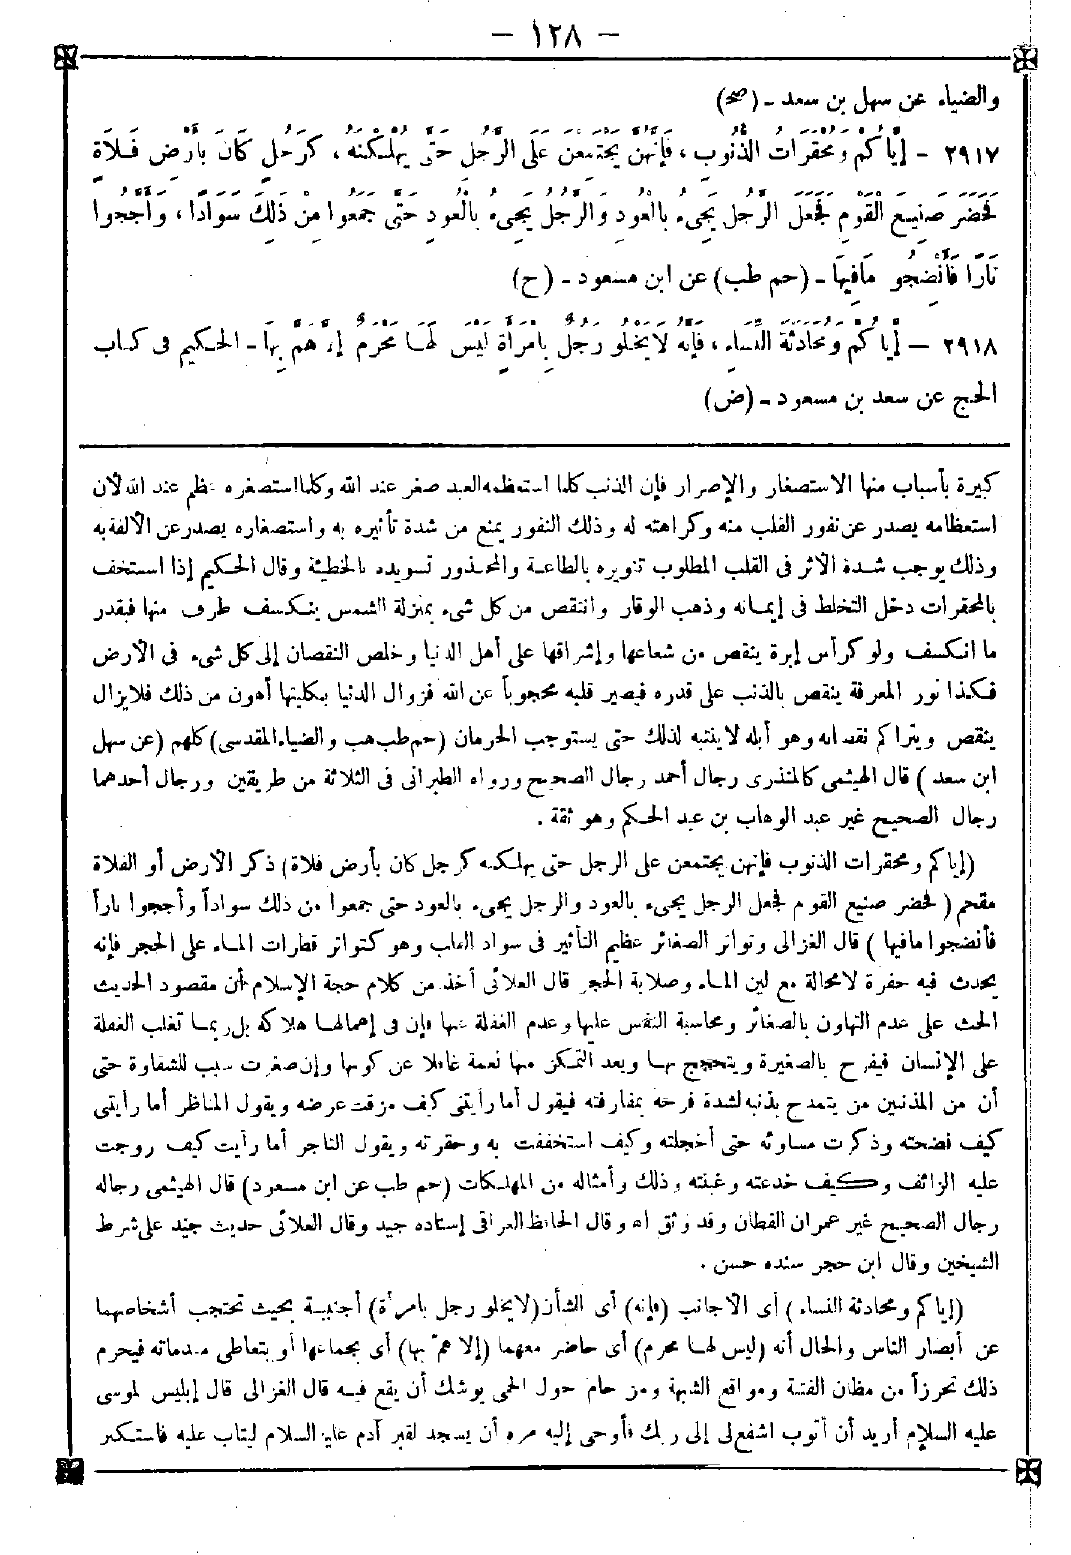 — ١٢٨ —
والضياء عن سهل بن سعد - (صح)
٢٩١٧ - إِيَّاكُمْ وَمُحَقَّرَاتِ الذُّنُوبِ، فَإِنَّهُنَّ يَجْتَمِعْنَ عَلَى الرَّجُلِ حَتَّى يُهْلِكْنَهُ، كَرَجُلٍ كَانَ بِأَرْضِ فَلَاةٍ
فَحَضَرَ صَنِيعَ الْقَوْمِ فَجَعَلَ الرَّجُلُ يَجِيءُ بِالْعُودِ وَالرَّجُلُ يَجِيءُ بِالْعُودِ حَتَّى جَمَعُوا مِنْ ذَلِكَ سَوَادًا، وَأَجَّجُوا
نَارًا فَأَنْضَجُو مَافِيهَا - (حم طب) عن ابن مسعود - (ح)
٢٩١٨ — إِيَّاكُمْ وَمُحَادَثَةَ النِّسَاءِ، فَإِنَّهُ لَايَخْلُو رَجُلٌ بِامْرَأَةٍ لَيْسَ لَهَا مَحْرَمٌ إِلَّا هَمَّ بِهَا - الحكيم فى كتاب
الحج عن سعد بن مسعود - (ض)
كبيرة بأسباب منها الاستصغار والإصرار فإن الذنب كلما استعظمه العبد صغر عند الله وكلما استصغره عظم عند الله لأن
استعظامه يصدر عن نفور القلب منه وكراهته له وذلك النفور يمنع من شدة تأثيره به واستصغاره يصدر عن الألفة به
وذلك يوجب شدة الأثر فى القلب المطلوب تنويره بالطاعة والمحذور تسويده بالخطيئة وقال الحكيم إذا استخف
بالمحقرات دخل التخلط فى إيمانه وذهب الوقار وانتقص من كل شىء بمنزلة الشمس ينكسف طرف منها فبقدر
ما انكسف ولو كرأس إبرة ينقص من شعاعها وإشراقها على أهل الدنيا وخلص النقصان إلى كل شىء فى الأرض
فكذا نور المعرفة ينقص بالذنب على قدره فيصير قلبه محجوباً عن الله فزوال الدنيا بكليتها أهون من ذلك فلايزال
ينقص ويتراكم نقصانه وهو أبله لاينتبه لذلك حتى يستوجب الحرمان (حم طب هب والضياء المقدسى) كلهم (عن سهل
ابن سعد) قال الهيثمى كالمنذرى رجال أحمد رجال الصحيح ورواه الطبرانى فى الثلاثة من طريقين ورجال أحدهما
رجال الصحيح غير عبد الوهاب بن عبد الحكم وهو ثقة .
(إياكم ومحقرات الذنوب فإنهن يجتمعن على الرجل حتى يهلكنه كرجل كان بأرض فلاة) ذكر الأرض أو الفلاة
مقحم (فحضر صنيع القوم فجعل الرجل يجىء بالعود والرجل يجىء بالعود حتى جمعوا من ذلك سواداً وأججوا ناراً
فأنضجوا مافيها) قال الغزالى وتواتر الصغائر عظيم التأثير فى سواد القلب وهو كتواتر قطرات الماء على الحجر فإنه
يحدث فيه حفرة لامحالة مع لين الماء وصلابة الحجر قال العلائى أخذ من كلام حجة الإسلام أن مقصود الحديث
الحث على عدم التهاون بالصغائر ومحاسبة النفس عليها وعدم الغفلة عنها فإن فى إهمالها هلاكه بل ربما تغلب الغفلة
على الإنسان فيفرح بالصغيرة ويتحجج بها ويعد التمكن منها نعمة غافلا عن كونها وإن صغرت سبب للشقاوة حتى
أن من المذنبين من يتمدح بذنبه لشدة فرحه بمفارقته فيقول أما رأيتنى كيف مزقت عرضه ويقول المناظر أما رأيتنى
كيف فضحته وذكرت مساوئه حتى أخجلته وكيف استخففت به وحقرته ويقول التاجر أما رأيت كيف روجت
عليه الزائف وكيف خدعته وغبنته وذلك وأمثاله من المهلكات (حم طب عن ابن مسعود) قال الهيثمى رجاله
رجال الصحيح غير عمران القطان وقد وثق اه وقال الحافظ العراقى إسناده جيد وقال العلائى حديث جيد على شرط
الشيخين وقال ابن حجر سنده حسن .
(إياكم ومحادثة النساء) أى الأجانب (فإنه) أى الشأن (لايخلو رجل بامرأة) أجنبية بحيث تحتجب أشخاصهما
عن أبصار الناس والحال أنه (ليس لها محرم) أى حاضر معهما (إلا همّ بها) أى بجماعها أو بتعاطى مقدماته فيحرم
ذلك تحرزاً من مظان الفتنة ومواقع الشبهة ومن حام حول الحمى يوشك أن يقع فيه قال الغزالى قال إبليس لموسى
عليه السلام أريد أن أتوب اشفع لى إلى ربك فأوحى إليه مره أن يسجد لقبر آدم عليه السلام ليتاب عليه فاستكبر